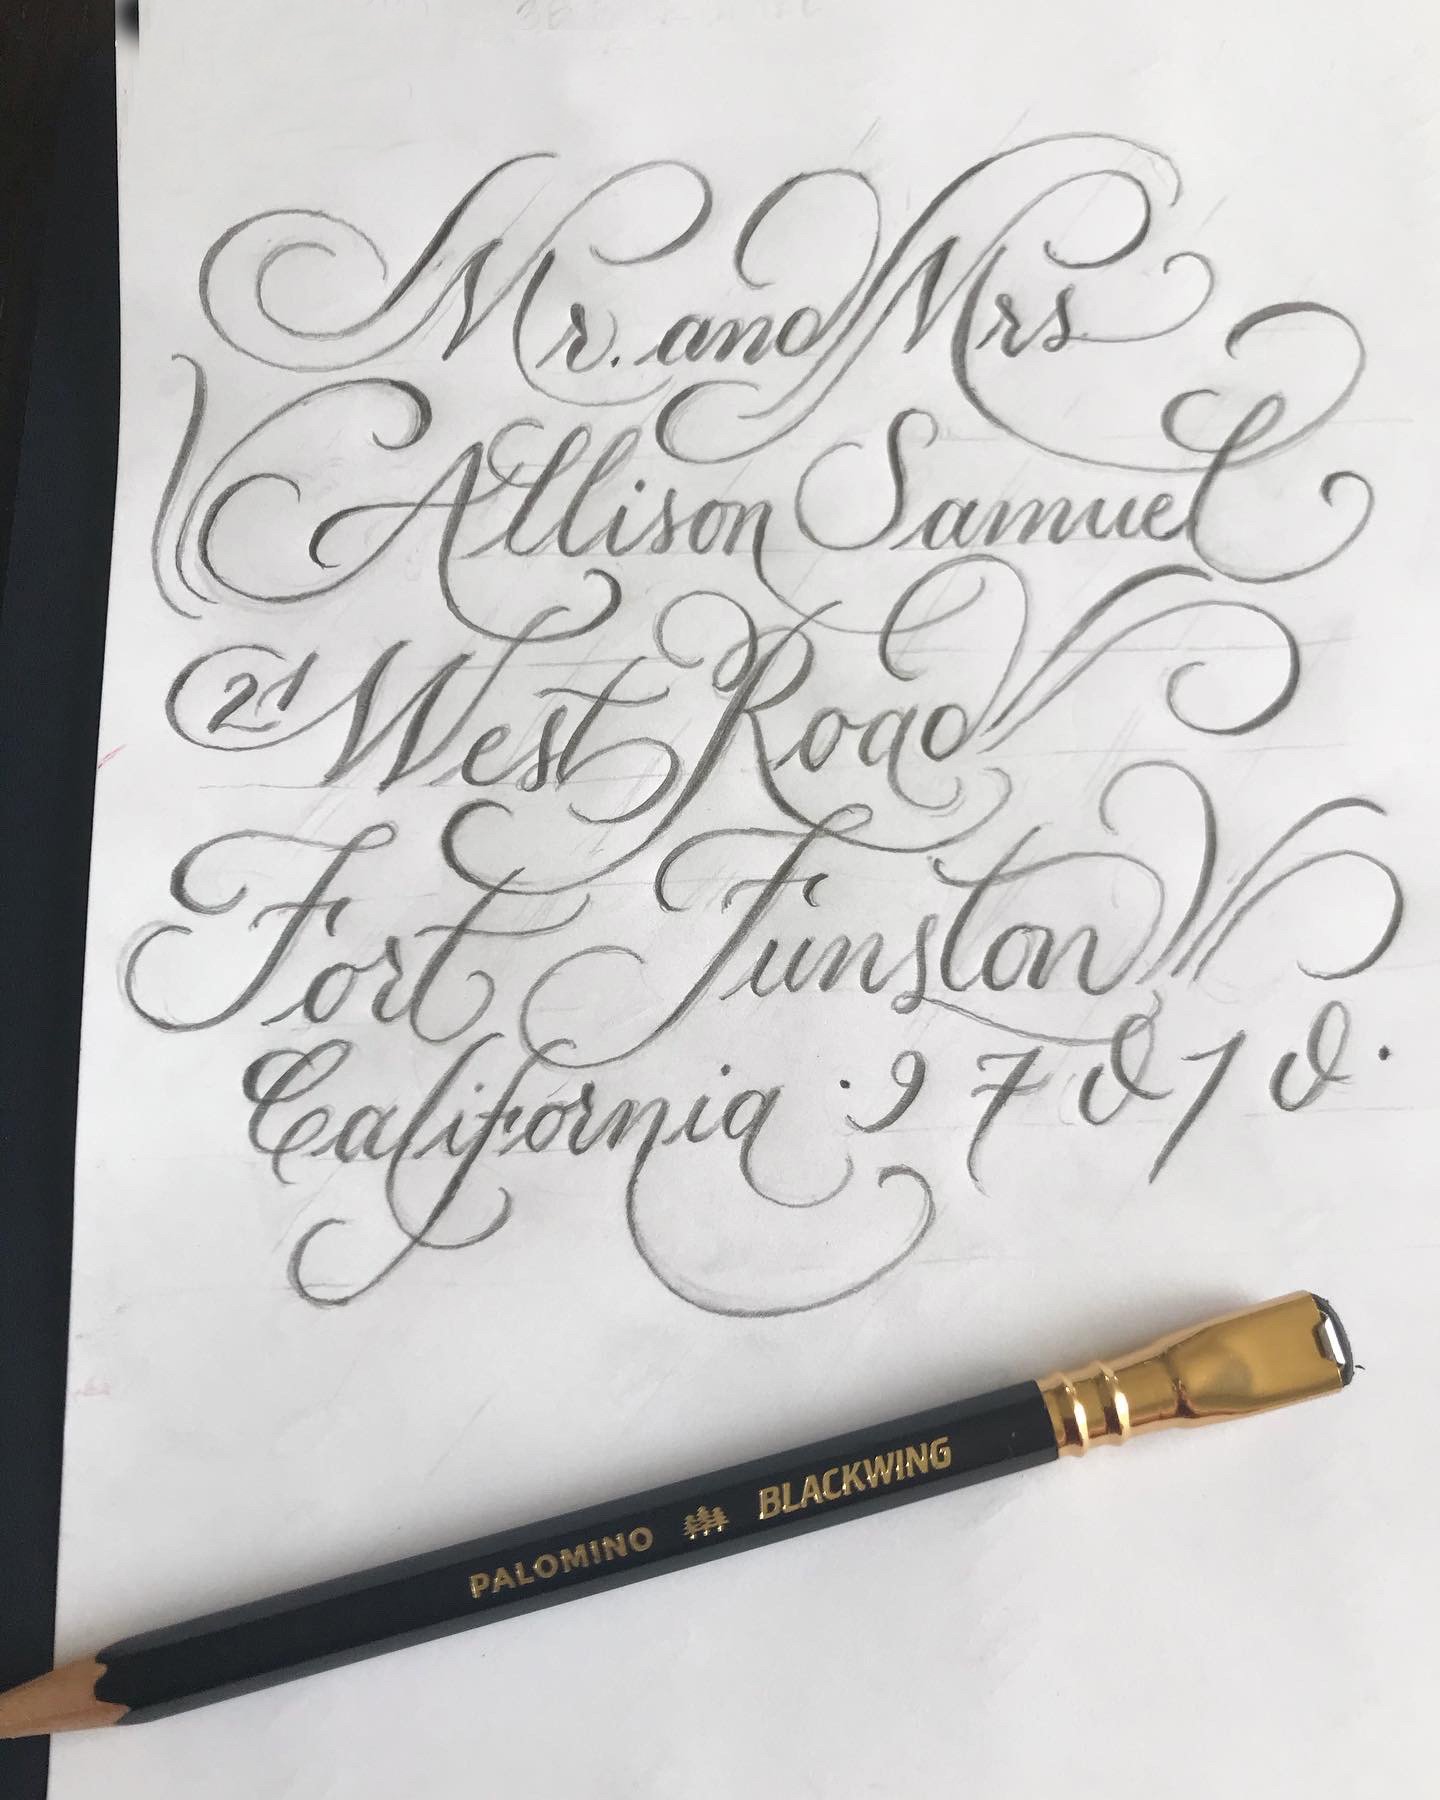 Mr. and Mrs
Allison Samuel
21 West Road
Fort Funston
California · 97070.
PALOMINO BLACKWING